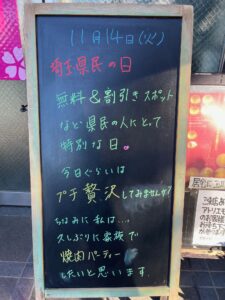 11月14日(火)
埼玉県民の日
無料&割引きスポット
など県民の人にとって
特別な日。
今日ぐらいは
プチ贅沢してみませんか?
ちなみに私は...。
久しぶりに家族で
焼肉パーティー
したいと思います